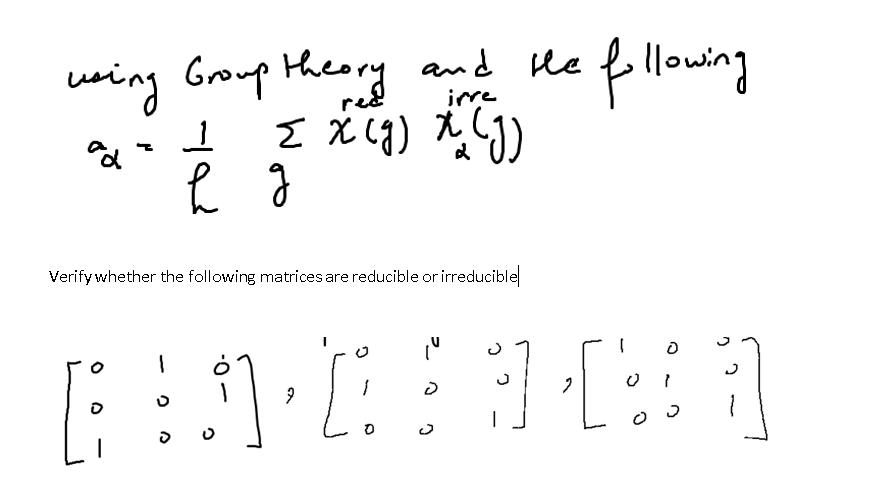 using Group theory and the following
a_α = 1/h Σ_g χ^red(g) χ_α^irre(g)
Verify whether the following matrices are reducible or irreducible
[0 1 0; 0 0 1; 1 0 0], [0 1 0; 1 0 0; 0 0 1], [1 0 0; 0 1 0; 0 0 1]